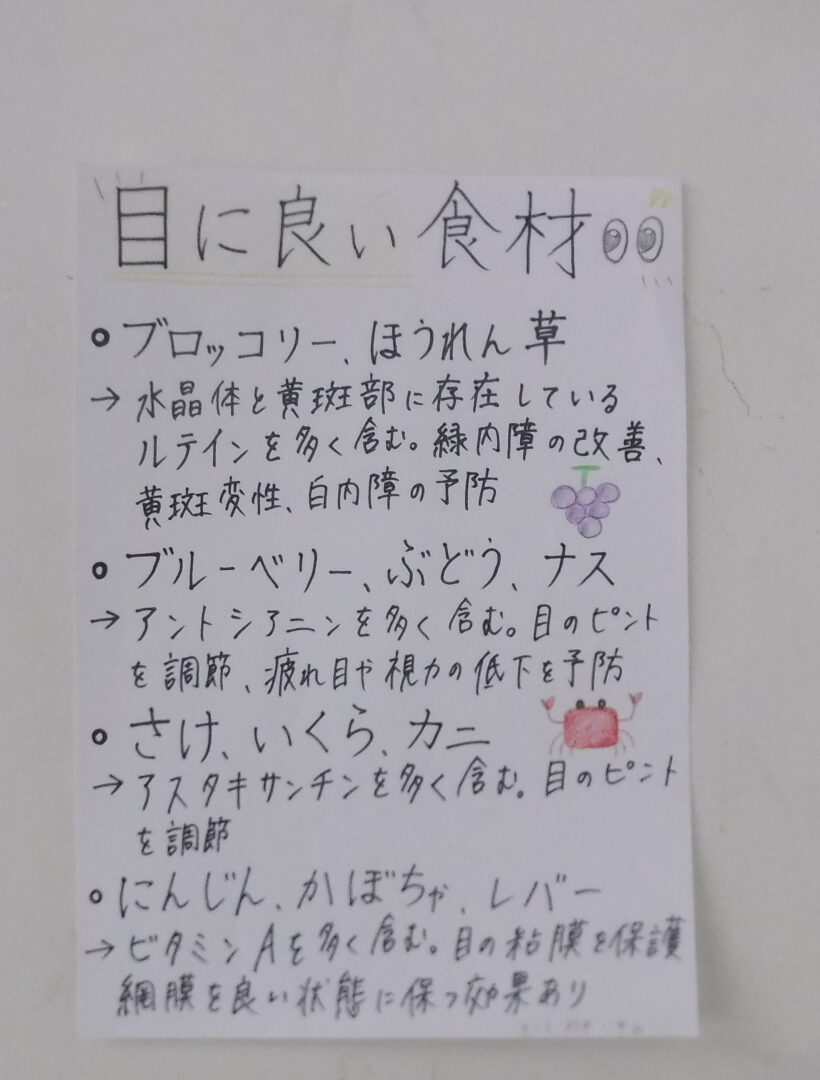 目に良い食材
○ブロッコリー、ほうれん草
→水晶体と黄斑部に存在している
ルテインを多く含む。緑内障の改善、
黄斑変性、白内障の予防
○ブルーベリー、ぶどう、ナス
→アントシアニンを多く含む。目のピント
を調節、疲れ目や視力の低下を予防
○さけ、いくら、カニ
→アスタキサンチンを多く含む。目のピント
を調節
○にんじん、かぼちゃ、レバー
→ビタミンAを多く含む。目の粘膜を保護
網膜を良い状態に保つ効果あり